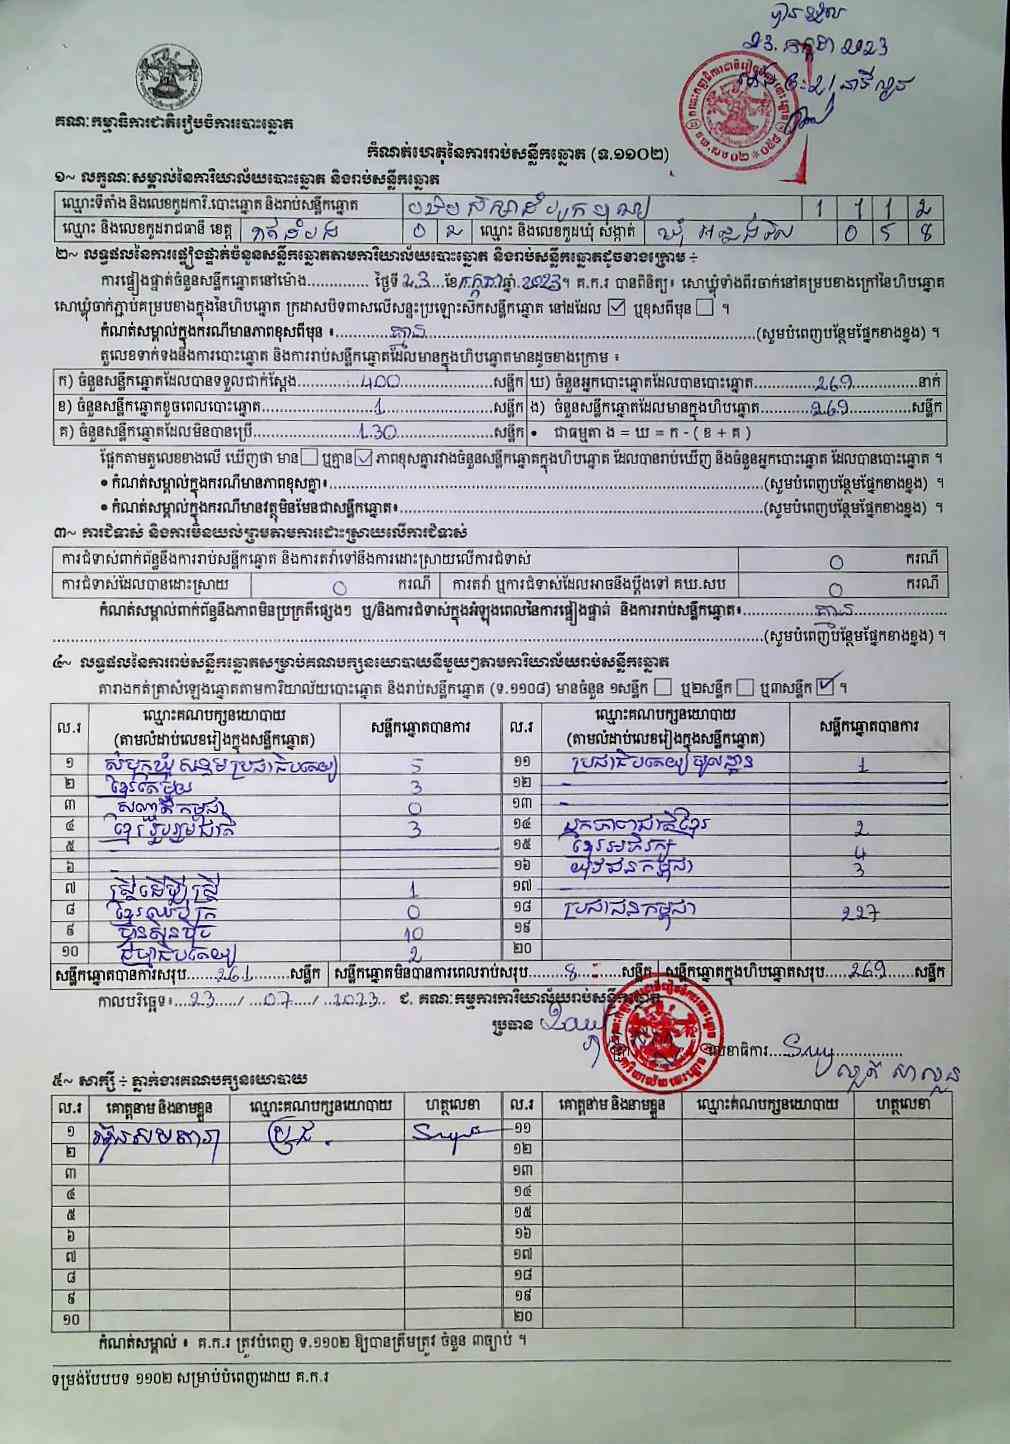 បានឃើញ
23. កក្កដា 2023
គណៈកម្មាធិការជាតិរៀបចំការបោះឆ្នោត
កំណត់ហេតុនៃការរាប់សន្លឹកឆ្នោត (ទ.១១០២)
១~ លក្ខណៈសម្គាល់នៃការិយាល័យបោះឆ្នោត និងរាប់សន្លឹកឆ្នោត
ឈ្មោះទីតាំង និងលេខកូដការិ.បោះឆ្នោត និងរាប់សន្លឹកឆ្នោត 1 1 1 2
ឈ្មោះ និងលេខកូដរាជធានី ខេត្ត បាត់ដំបង 0 2 ឈ្មោះ និងលេខកូដឃុំ សង្កាត់ ឃុំ 0 5 8
២~ លទ្ធផលនៃការផ្ទៀងផ្ទាត់ចំនួនសន្លឹកឆ្នោតតាមការិយាល័យបោះឆ្នោត និងរាប់សន្លឹកឆ្នោតដូចខាងក្រោម ÷
ការផ្ទៀងផ្ទាត់ចំនួនសន្លឹកឆ្នោតនៅម៉ោង.............. ថ្ងៃទី 23 ខែ កក្កដា ឆ្នាំ 2023។ គ.ក.រ បានពិនិត្យ៖ សោឃ្លុំទាំងពីរចាក់នៅគម្របខាងក្រៅនៃហិបឆ្នោត
សោឃ្លុំចាក់ភ្ជាប់គម្របខាងក្នុងនៃហិបឆ្នោត ក្រដាសបិទពាសលើសន្ទះប្រឡោះសឹកសន្លឹកឆ្នោត នៅដដែល ☑ ឬខុសពីមុន ☐ ។
កំណត់សម្គាល់ក្នុងករណីមានភាពខុសពីមុន ៖ គ្មាន (សូមបំពេញបន្ថែមផ្នែកខាងខ្នង) ។
តួលេខទាក់ទងនឹងការបោះឆ្នោត និងការរាប់សន្លឹកឆ្នោតដែលមានក្នុងហិបឆ្នោតមានដូចខាងក្រោម ៖
ក) ចំនួនសន្លឹកឆ្នោតដែលបានទទួលជាក់ស្តែង 400 សន្លឹក ឃ) ចំនួនអ្នកបោះឆ្នោតដែលបានបោះឆ្នោត 269 នាក់
ខ) ចំនួនសន្លឹកឆ្នោតខូចពេលបោះឆ្នោត 1 សន្លឹក ង) ចំនួនសន្លឹកឆ្នោតដែលមានក្នុងហិបឆ្នោត 269 សន្លឹក
គ) ចំនួនសន្លឹកឆ្នោតដែលមិនបានប្រើ 130 សន្លឹក • ជាធម្មតា ង = ឃ = ក - ( ខ + គ )
ផ្អែកតាមតួលេខខាងលើ ឃើញថា មាន ☐ ឬគ្មាន ☑ ភាពខុសគ្នារវាងចំនួនសន្លឹកឆ្នោតក្នុងហិបឆ្នោត ដែលបានរាប់ឃើញ និងចំនួនអ្នកបោះឆ្នោត ដែលបានបោះឆ្នោត ។
• កំណត់សម្គាល់ក្នុងករណីមានភាពខុសគ្នា៖ (សូមបំពេញបន្ថែមផ្នែកខាងខ្នង) ។
• កំណត់សម្គាល់ក្នុងករណីមានវត្ថុមិនមែនជាសន្លឹកឆ្នោត៖ (សូមបំពេញបន្ថែមផ្នែកខាងខ្នង) ។
៣~ ការជំទាស់ និងការមិនយល់ព្រមតាមការដោះស្រាយលើការជំទាស់
ការជំទាស់ពាក់ព័ន្ធនឹងការរាប់សន្លឹកឆ្នោត និងការតវ៉ាទៅនឹងការដោះស្រាយលើការជំទាស់ 0 ករណី
ការជំទាស់ដែលបានដោះស្រាយ 0 ករណី ការតវ៉ា ឬការជំទាស់ដែលអាចនឹងប្តឹងទៅ គឃ.សប 0 ករណី
កំណត់សម្គាល់ពាក់ព័ន្ធនឹងភាពមិនប្រក្រតីផ្សេងៗ ឬ/និងការជំទាស់ក្នុងអំឡុងពេលនៃការផ្ទៀងផ្ទាត់ និងការរាប់សន្លឹកឆ្នោត៖ គ្មាន
(សូមបំពេញបន្ថែមផ្នែកខាងខ្នង) ។
៤~ លទ្ធផលនៃការរាប់សន្លឹកឆ្នោតសម្រាប់គណបក្សនយោបាយនីមួយៗតាមការិយាល័យរាប់សន្លឹកឆ្នោត
តារាងកត់ត្រាសំឡេងឆ្នោតតាមការិយាល័យបោះឆ្នោត និងរាប់សន្លឹកឆ្នោត (ទ.១១០៨) មានចំនួន ១សន្លឹក ☐ ឬ២សន្លឹក ☐ ឬ៣សន្លឹក ☑ ។
ល.រ ឈ្មោះគណបក្សនយោបាយ (តាមលំដាប់លេខរៀងក្នុងសន្លឹកឆ្នោត) សន្លឹកឆ្នោតបានការ ល.រ ឈ្មោះគណបក្សនយោបាយ (តាមលំដាប់លេខរៀងក្នុងសន្លឹកឆ្នោត) សន្លឹកឆ្នោតបានការ
១ សំបុកឃ្មុំសង្គមប្រជាធិបតេយ្យ 5 ១១ ប្រជាធិបតេយ្យមូលដ្ឋាន 1
២ ខ្មែរតែមួយ 3 ១២
៣ សញ្ជាតិកម្ពុជា 0 ១៣
៤ ខ្មែររួបរួមជាតិ 3 ១៤ ឯកភាពជាតិខ្មែរ 2
៥ ១៥ ខ្មែរអភិរក្ស 4
៦ ១៦ យុវជនកម្ពុជា 3
៧ ស្ត្រីដើម្បីស្ត្រី 1 ១៧
៨ ខ្មែរឈប់ក្រ 0 ១៨ ប្រជាជនកម្ពុជា 227
៩ ហ្វ៊ុនស៊ិនប៉ិច 10 ១៩
១០ ធម្មាធិបតេយ្យ 2 ២០
សន្លឹកឆ្នោតបានការសរុប 261 សន្លឹក សន្លឹកឆ្នោតមិនបានការពេលរាប់សរុប 8 សន្លឹក សន្លឹកឆ្នោតក្នុងហិបឆ្នោតសរុប 269 សន្លឹក
កាលបរិច្ឆេទ៖ 23 / 07 / 2023 ជ. គណៈកម្មការការិយាល័យរាប់សន្លឹកឆ្នោត
ប្រធាន លេខាធិការ
៥~ សាក្សី ÷ ភ្នាក់ងារគណបក្សនយោបាយ
ល.រ គោត្តនាម និងនាមខ្លួន ឈ្មោះគណបក្សនយោបាយ ហត្ថលេខា ល.រ គោត្តនាម និងនាមខ្លួន ឈ្មោះគណបក្សនយោបាយ ហត្ថលេខា
១ ១១
២ ១២
៣ ១៣
៤ ១៤
៥ ១៥
៦ ១៦
៧ ១៧
៨ ១៨
៩ ១៩
១០ ២០
កំណត់សម្គាល់ ៖ គ.ក.រ ត្រូវបំពេញ ទ.១១០២ ឱ្យបានត្រឹមត្រូវ ចំនួន ៣ច្បាប់ ។
ទម្រង់បែបបទ ១១០២ សម្រាប់បំពេញដោយ គ.ក.រ